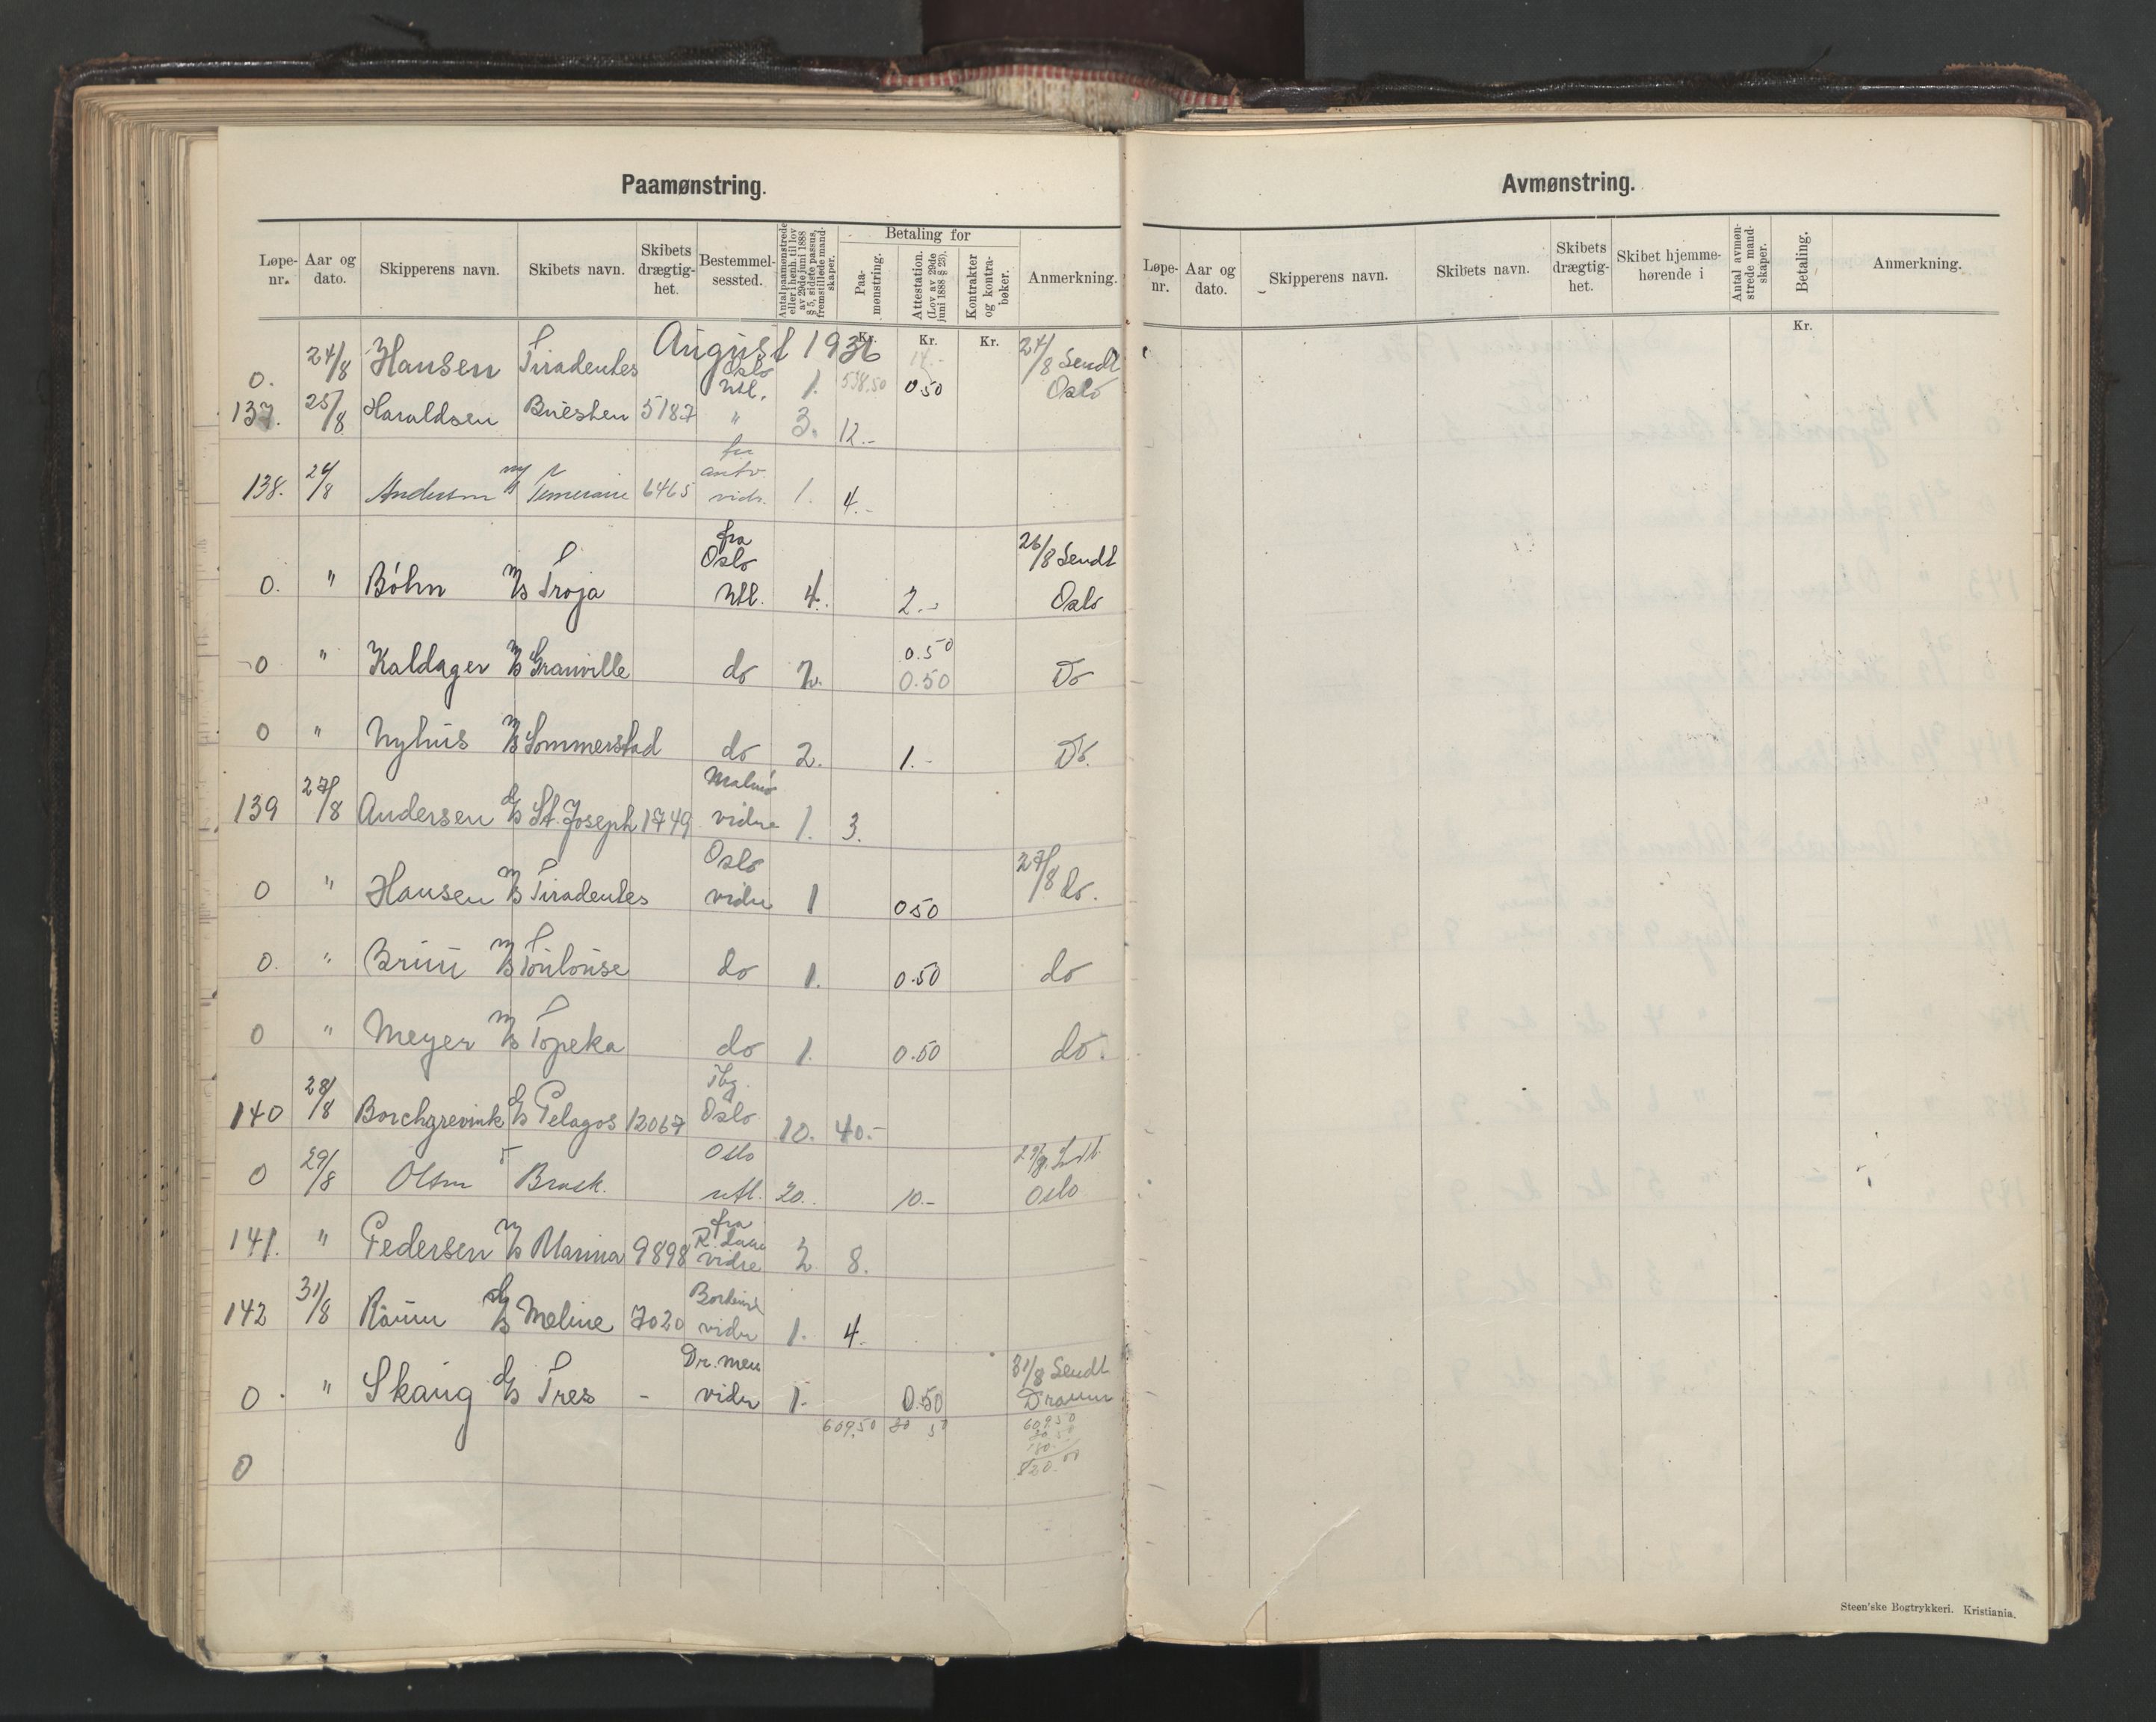 Paamønstring.
Løpe-nr. Aar og dato. Skipperens navn. Skibets navn. Skibets drægtig-het. Bestemmel-sessted. Antal paamønstrede eller i henh. til lov av 29de juni 1888 § 5, sidste passus, fremstillede mand-skaper. Betaling for Paa-mønstring. Attestation. (Lov av 29de juni 1888 § 23). Kontrakter og kontra-bøker. Anmerkning.
Kr. Kr. Kr.
August 1936
0. 24/8 Hansen Tiradentes Oslo Utl. 1. 538.50 14.- 0.50 24/8 Sendt Oslo
137. 25/8 Haraldsen 5187 " 3. 12.-
138. 26/8 Andersen m/s Temeraire 6465 fra antv. vidr. 1. 4.-
0. " Böhn m/s Troja fra Oslo Utl. 4. 2.- 26/8 Sendt Oslo
0 " Kaldager m/s Granville do 2. 0.50 0.50 Do
0 " Nyhus m/s Sommerstad do 2. 1.- Do.
139 27/8 Andersen d/s St. Joseph 1749 Malmö vidre 1. 3.
0 " Hansen m/s Tiradentes Oslo vidre 1 0.50 27/8 do.
0. " Bruu m/s Toulouse do 1. 0.50 do
0 " Meyer m/s Topeka do 1. 0.50 do.
140 28/8 Borchgrevink d/s Pelagos 12067 Tbg. Oslo 10. 40.-
0 29/8 Olsen T Brask. Oslo utl. 20. 10.- 29/8. Sdt. Oslo
141. " Pedersen m/s Marina 9898 fra vidre 2 8.
142 31/8 Meline 7020 vidre 1. 4.
0. " Skaug d/s Tres - Dr.men vidre 1. 0.50 31/8 Sendt Dramm
609.50 20 50 609.50
20.50
180
820.00
0
Avmønstring.
Løpe-nr. Aar og dato. Skipperens navn. Skibets navn. Skibets drægtig-het. Skibet hjemme-hørende i Antal avmøn-strede mand-skaper. Betaling. Anmerkning.
Kr.
Steen'ske Bogtrykkeri. Kristiania.